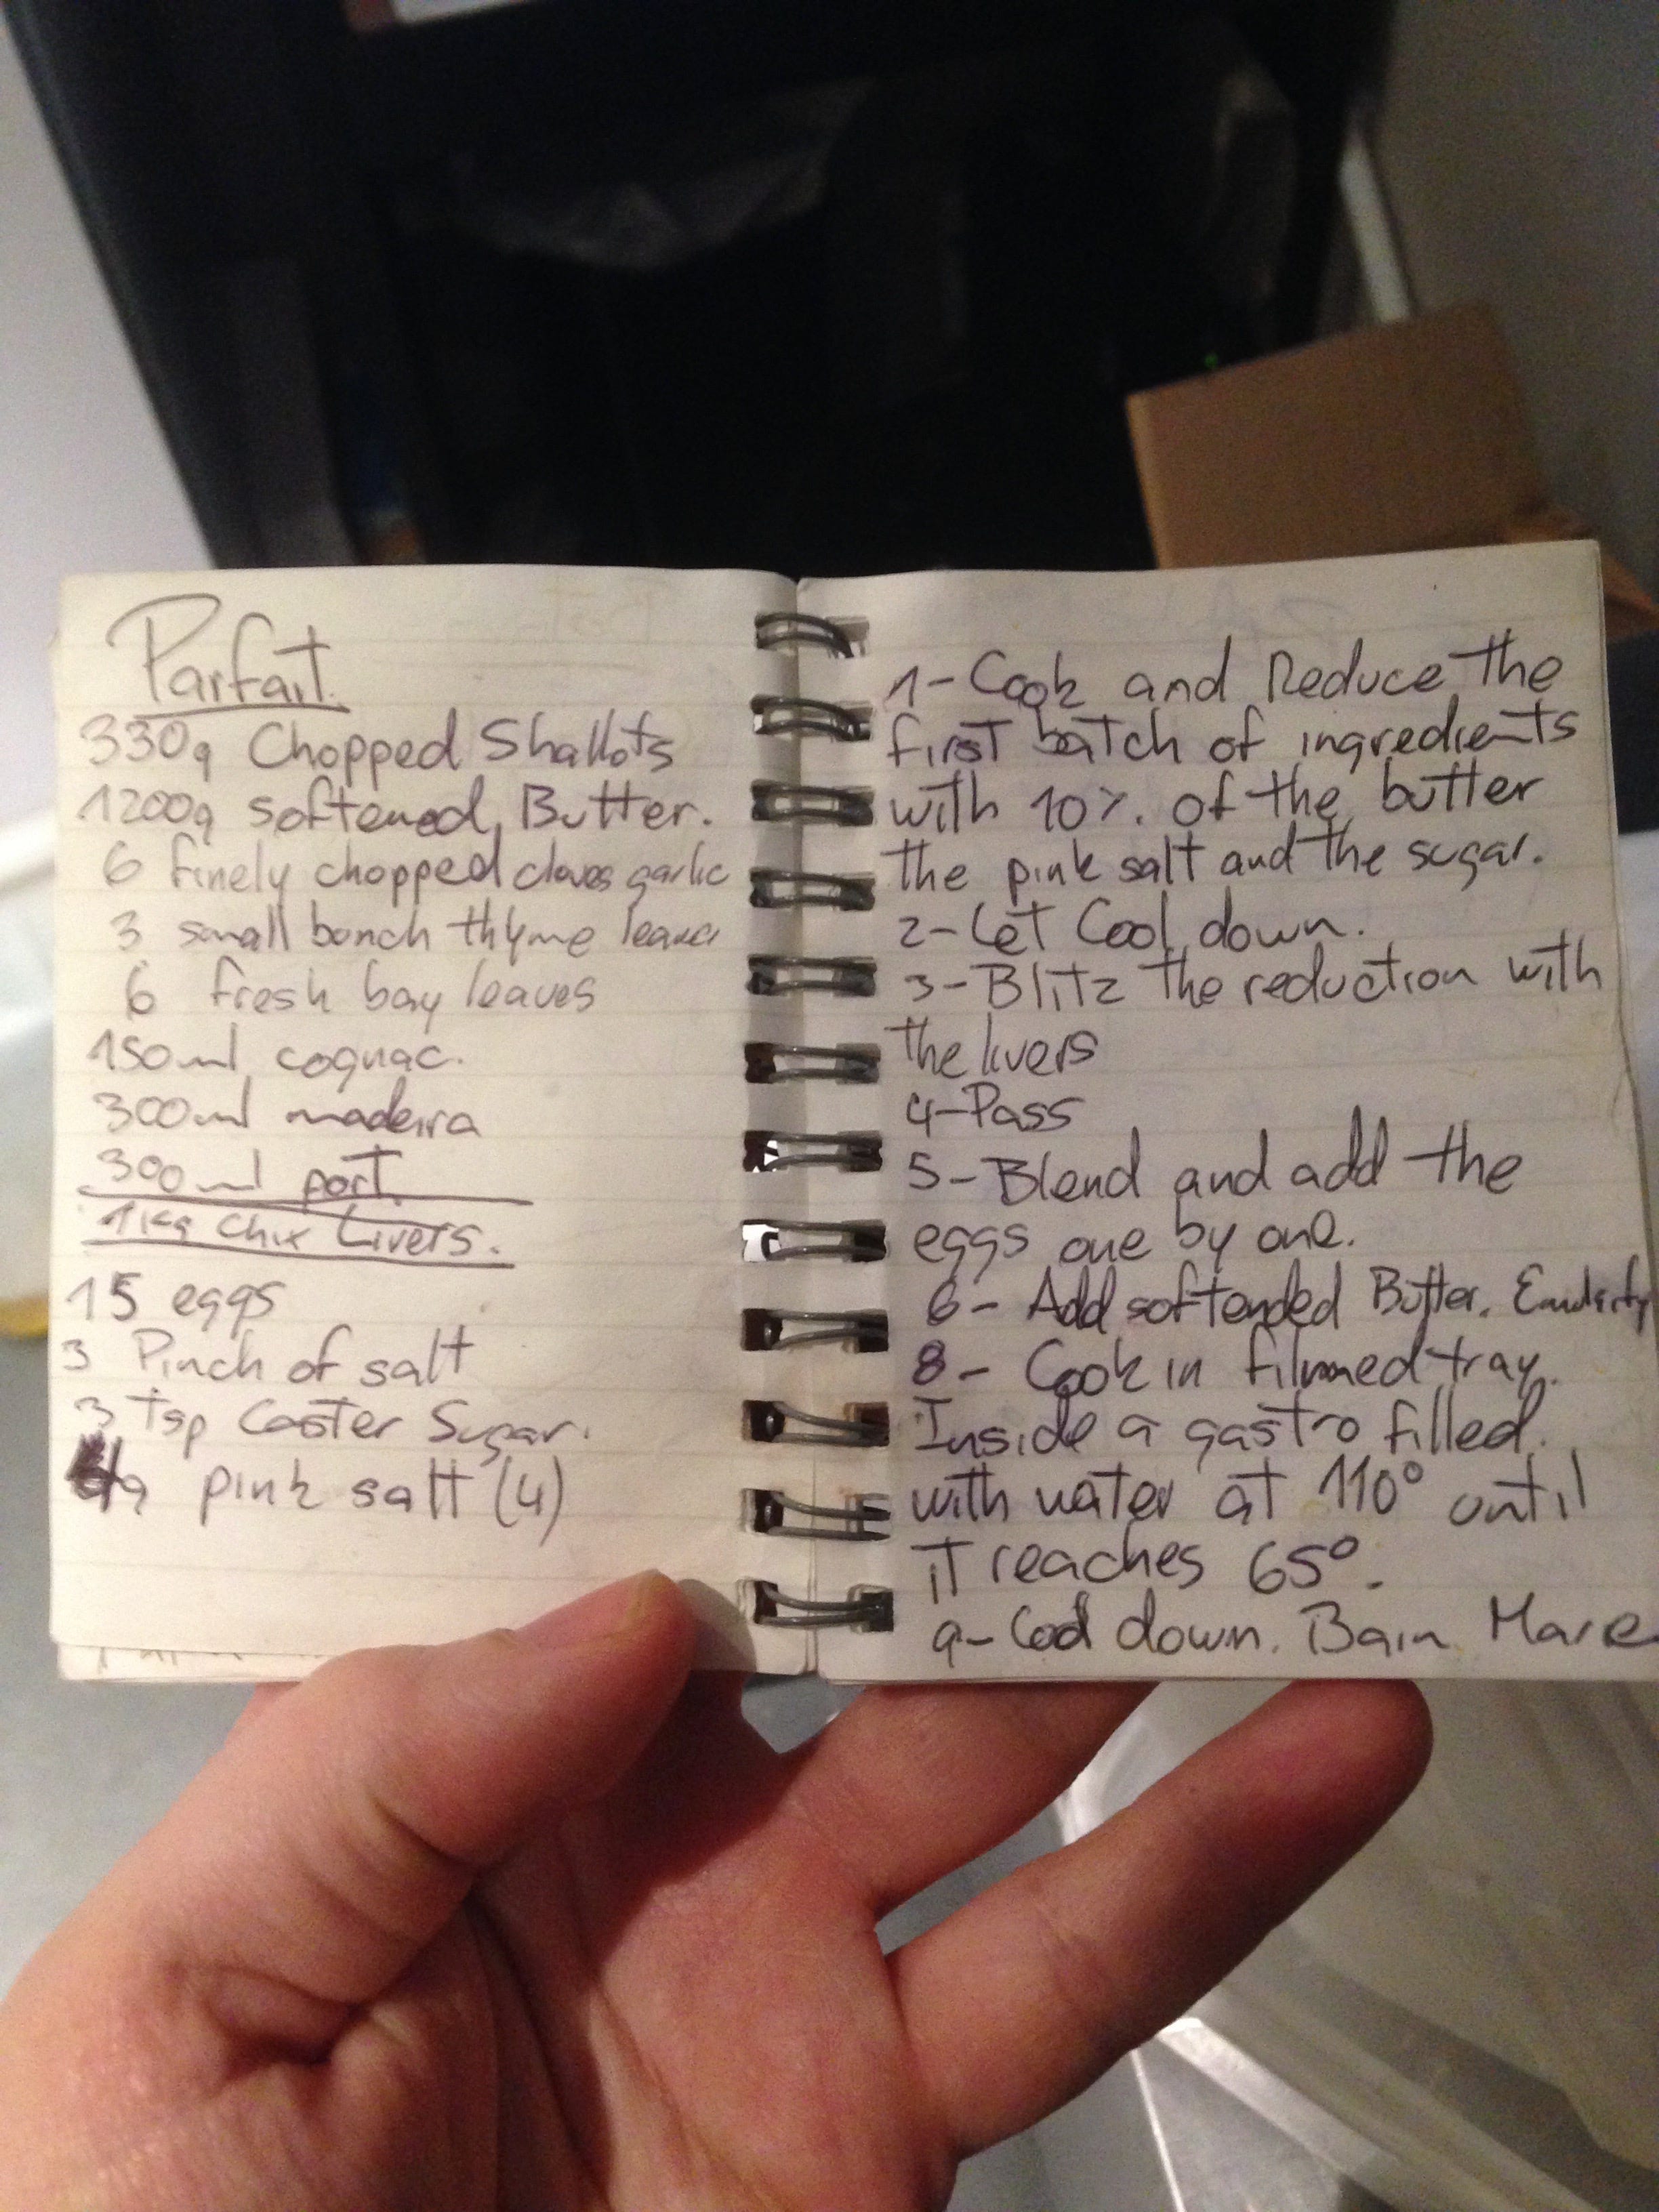 Parfait.
330g Chopped Shallots
1200g softened Butter.
6 finely chopped cloves garlic
3 small bonch thyme leaves
6 fresh bay leaves
150ml cognac.
300ml madeira
300ml port.
1kg Chix Livers.
15 eggs
3 Pinch of salt
3 Tsp Caster Sugar.
g pink salt (4)
1- Cook and Reduce the
first batch of ingredients
with 10%. of the butter
the pink salt and the sugar.
2- Let Cool down.
3- Blitz the reduction with
the livers
4- Pass
5- Blend and add the
eggs one by one.
6- Add softended Butter.
8- Cook in filmed tray.
Inside a gastro filled
with water at 110° until
it reaches 65°.
9- Cool down. Bain Marie